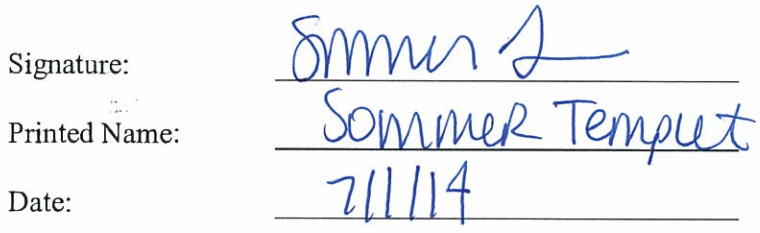 Signature: Sommer
Printed Name: Sommer Templet
Date: 7/1/14